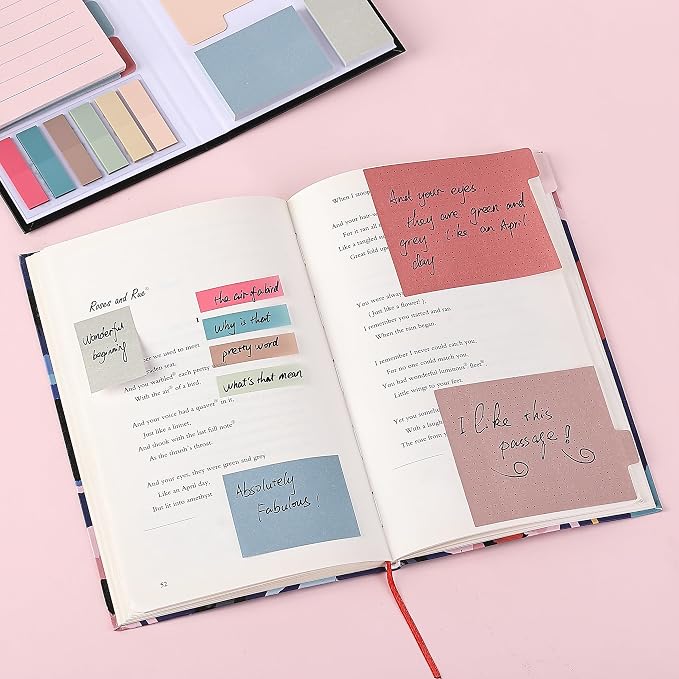 Roses and Rue
Wonderful
beginning
the air of a bird
why is that
pretty word
what's that mean
I
we used to meet
seat,
And you warbled each pretty
With the air of a bird.
And your voice had a quaver in it,
Just like a linnet,
And shook with the last full note
As the thrush's throat.
And your eyes, they were green and grey
Like an April day,
But lit into amethyst
Absolutely
Fabulous!
52
When I
And your hair
For it ran all
Like a tangled
Great fold
And your eyes,
they are green and
grey. Like an April
day
You were always
(Just like a flower!),
I remember you started and ran
When the rain began.
I remember I never could catch you,
For no one could match you,
You had wonderful luminous fleet
Little wings to your feet.
Yet you
With a laugh
The rose from
I like this
passage!